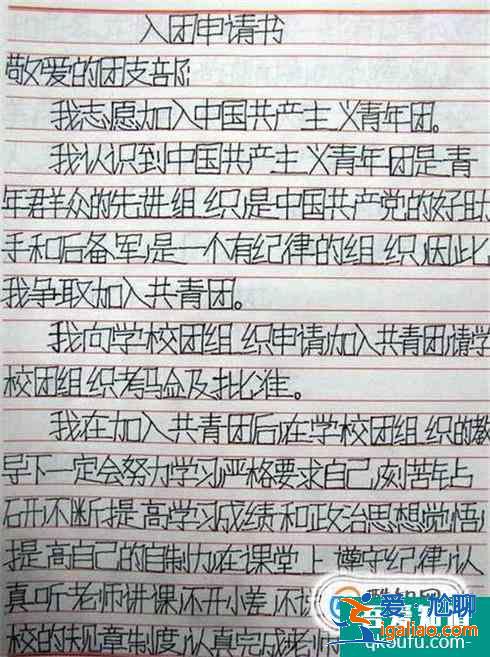 入团申请书
敬爱的团支部
我志愿加入中国共产主义青年团。
我认识到中国共产主义青年团是青
年群众的先进组织,是中国共产党的好助
手和后备军,是一个有纪律的组织,因此,
我争取加入共青团。
我向学校团组织申请,加入共青团,请学
校团组织考验及批准。
我在加入共青团后,在学校团组织的教
导下一定会努力学习,严格要求自己,刻苦钻
研,不断提高学习成绩和政治思想觉悟,
提高自己的自制力,在课堂上,遵守纪律,认
真听老师讲课,不开小差,不
校的规章制度,认真完成老师
爱·尬聊
igaliao.com
qk9ufu.com